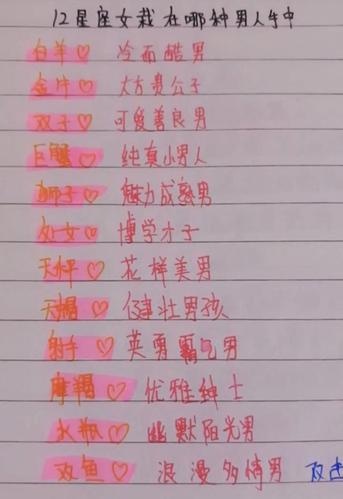 12星座女栽在哪种男人手中
白羊♡ 冷而酷男
金牛♡ 大方贵公子
双子♡ 可爱善良男
巨蟹♡ 纯真小男人
狮子♡ 魅力成熟男
处女♡ 博学才子
天枰♡ 花样美男
天蝎♡ 健壮男孩
射手♡ 英勇霸气男
摩羯♡ 优雅绅士
水瓶♡ 幽默阳光男
双鱼♡ 浪漫多情男 双击